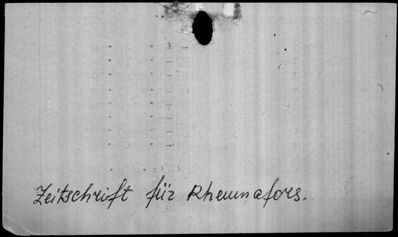 Zeitschrift für Rheumafors.